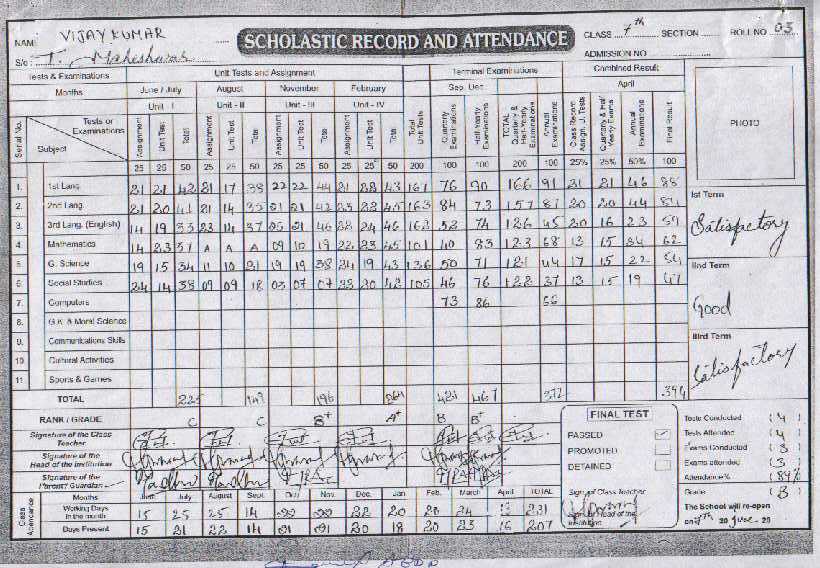 NAME VIJAY KUMAR
SCHOLASTIC RECORD AND ATTENDANCE
CLASS 7th SECTION ROLL NO 03
S/o T. Maheshwar
ADMISSION NO
Tests & Examinations Unit Tests and Assignment Terminal Examinations Combined Result
Months June / July August November February Sep. Dec. April
Unit - I Unit - II Unit - III Unit - IV
Serial No. Subject Tests or Examinations Assignment Unit Test Total Assignment Unit Test Total Assignment Unit Test Total Assignment Unit Test Total Total Unit Tests Quarterly Examinations Half-Yearly Examinations TOTAL Quarterly & Half-Yearly Examinations Annual Examinations Class Record Assign. U. Tests Quarterly & Half Yearly Exams Annual Examinations Final Result
PHOTO
25 25 50 25 25 50 25 25 50 25 25 50 200 100 100 200 100 25% 25% 50% 100
1. 1st Lang. 21 21 42 21 17 38 22 22 44 21 22 43 167 76 90 166 91 21 21 46 88
2. 2nd Lang. 21 20 41 21 14 35 21 21 42 23 22 45 163 84 73 157 87 20 20 44 84
3. 3rd Lang. (English) 14 19 33 23 14 37 25 21 46 22 24 46 162 52 74 126 45 20 16 23 59
4. Mathematics 14 23 37 A A A 09 10 19 22 23 45 101 40 83 123 68 13 15 34 62
5. G. Science 19 15 34 11 10 21 19 19 38 24 19 43 136 50 71 121 44 17 15 22 54
6. Social Studies 24 14 38 09 09 18 07 07 22 20 42 105 46 76 122 37 13 15 19 47
7. Computers 73 86
8. G.K. & Moral Science
9. Communications Skills
10. Cultural Activities
11. Sports & Games
Ist Term
Satisfactory
IInd Term
Good
IIIrd Term
Satisfactory
TOTAL 225 149 196 264 421 467 372 394
RANK / GRADE C C B+ A+ B B+
Signature of the Class Teacher
Signature of the Head of the Institution
Signature of the Parent / Guardian
FINAL TEST
PASSED ✓
PROMOTED
DETAINED
Sign of Class Teacher
Sign of Head of the Institution
Tests Conducted ( 4 )
Tests Attended ( 4 )
Exams Conducted ( 3 )
Exams attended ( 3 )
Attendance% ( 89% )
Grade ( B )
The School will re-open
on 20 June - 20
Class Attendance
Months June July August Sept. Oct. Nov. Dec. Jan. Feb. March April TOTAL
Working Days in the month 15 25 25 14 22 20 20 24 231
Days Present 15 21 22 14 21 21 20 18 20 23 16 207